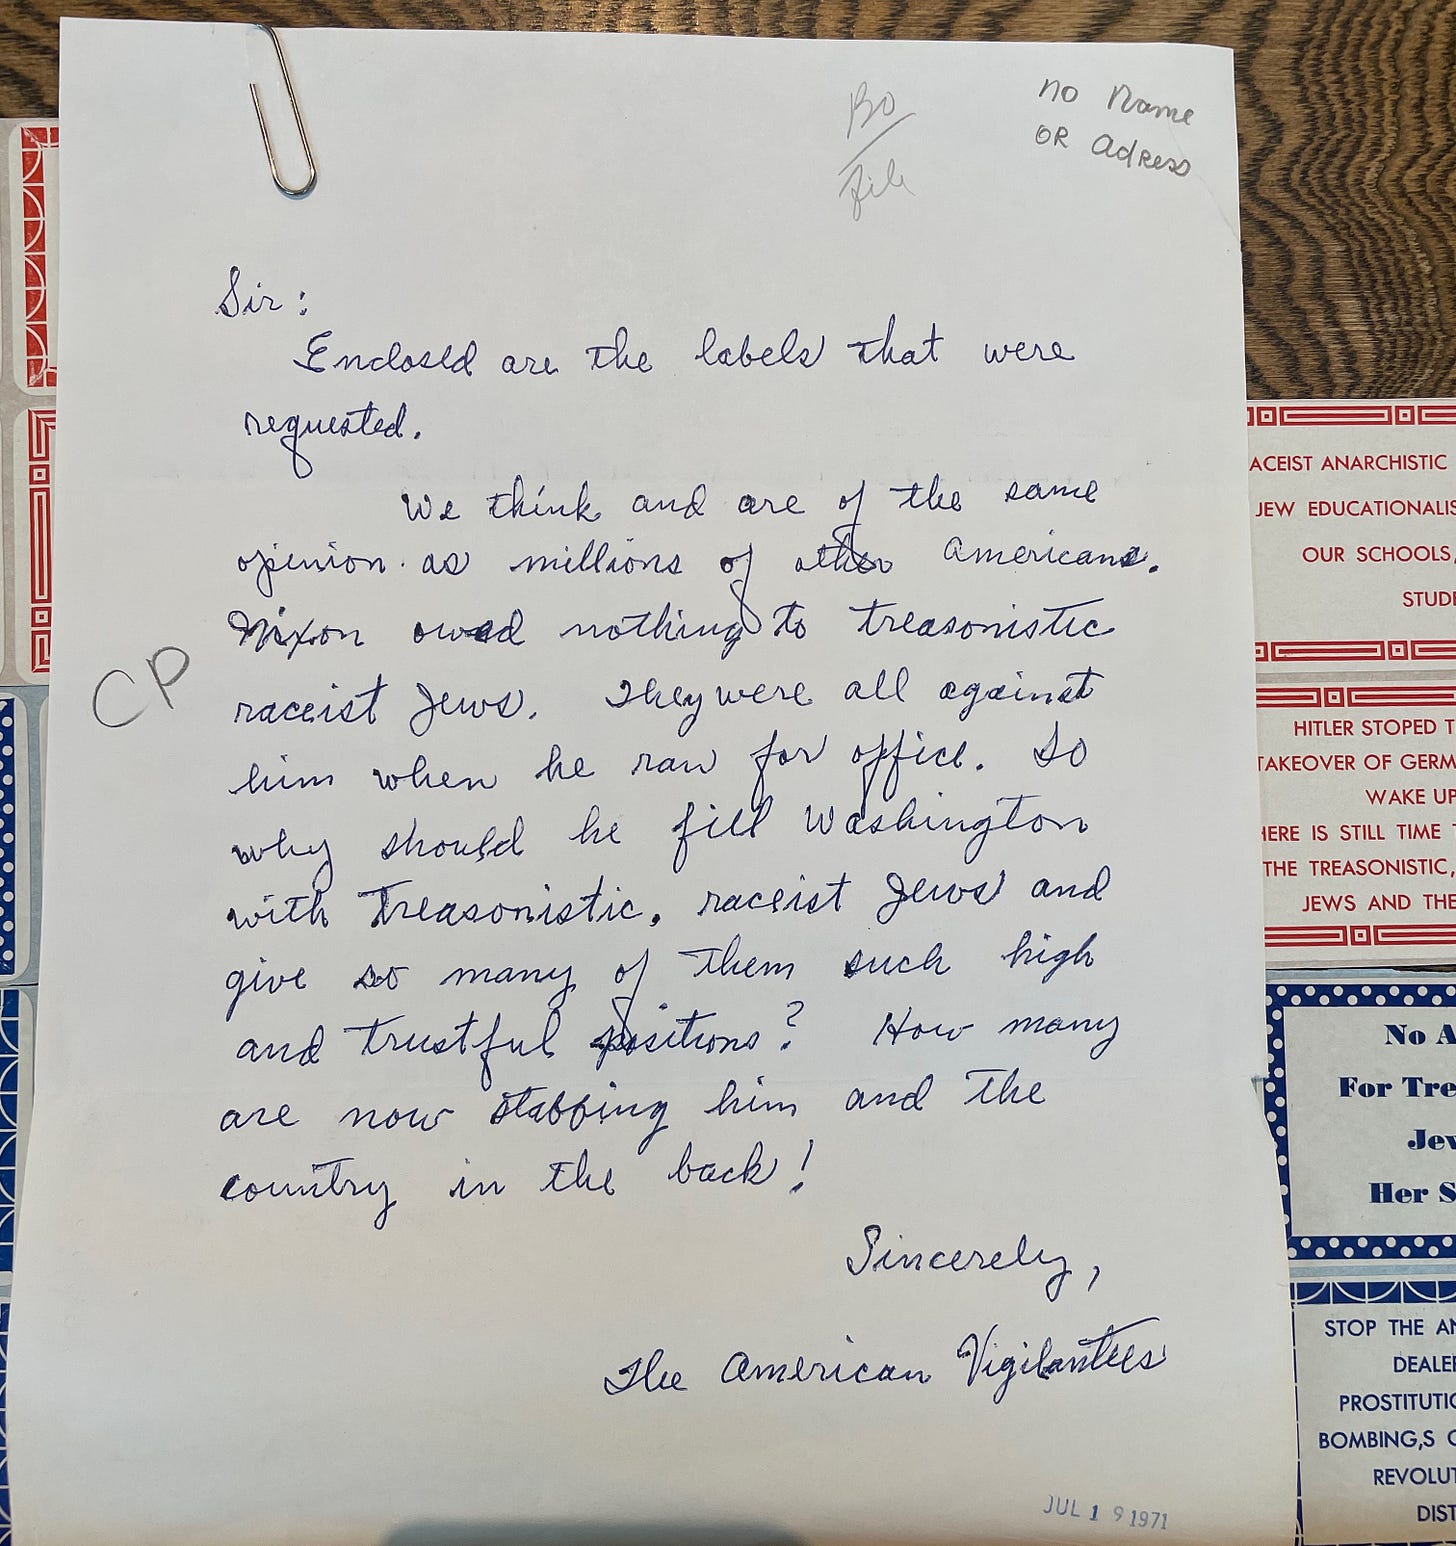 no Name
OR Adress
File
Sir:
Enclosed are the labels that were
requested.
We think and are of the same
opinion as millions of other Americans.
Nixon owed nothing to treasonistic
raceist Jews. They were all against
him when he ran for office. So
why should he fill Washington
with treasonistic, raceist Jews and
give so many of them such high
and trustful positions? How many
are now stabbing him and the
country in the back!
Sincerely,
The American Vigilantees
CP
JUL 19 1971
ACEIST ANARCHISTIC
JEW EDUCATIONALIS
OUR SCHOOLS,
STUDE
HITLER STOPED T
TAKEOVER OF GERM
WAKE UP
HERE IS STILL TIME T
THE TREASONISTIC,
JEWS AND THE
No A
For Tre
Jew
Her S
STOP THE AN
DEALER
PROSTITUTIO
BOMBING,S O
REVOLUT
DIST